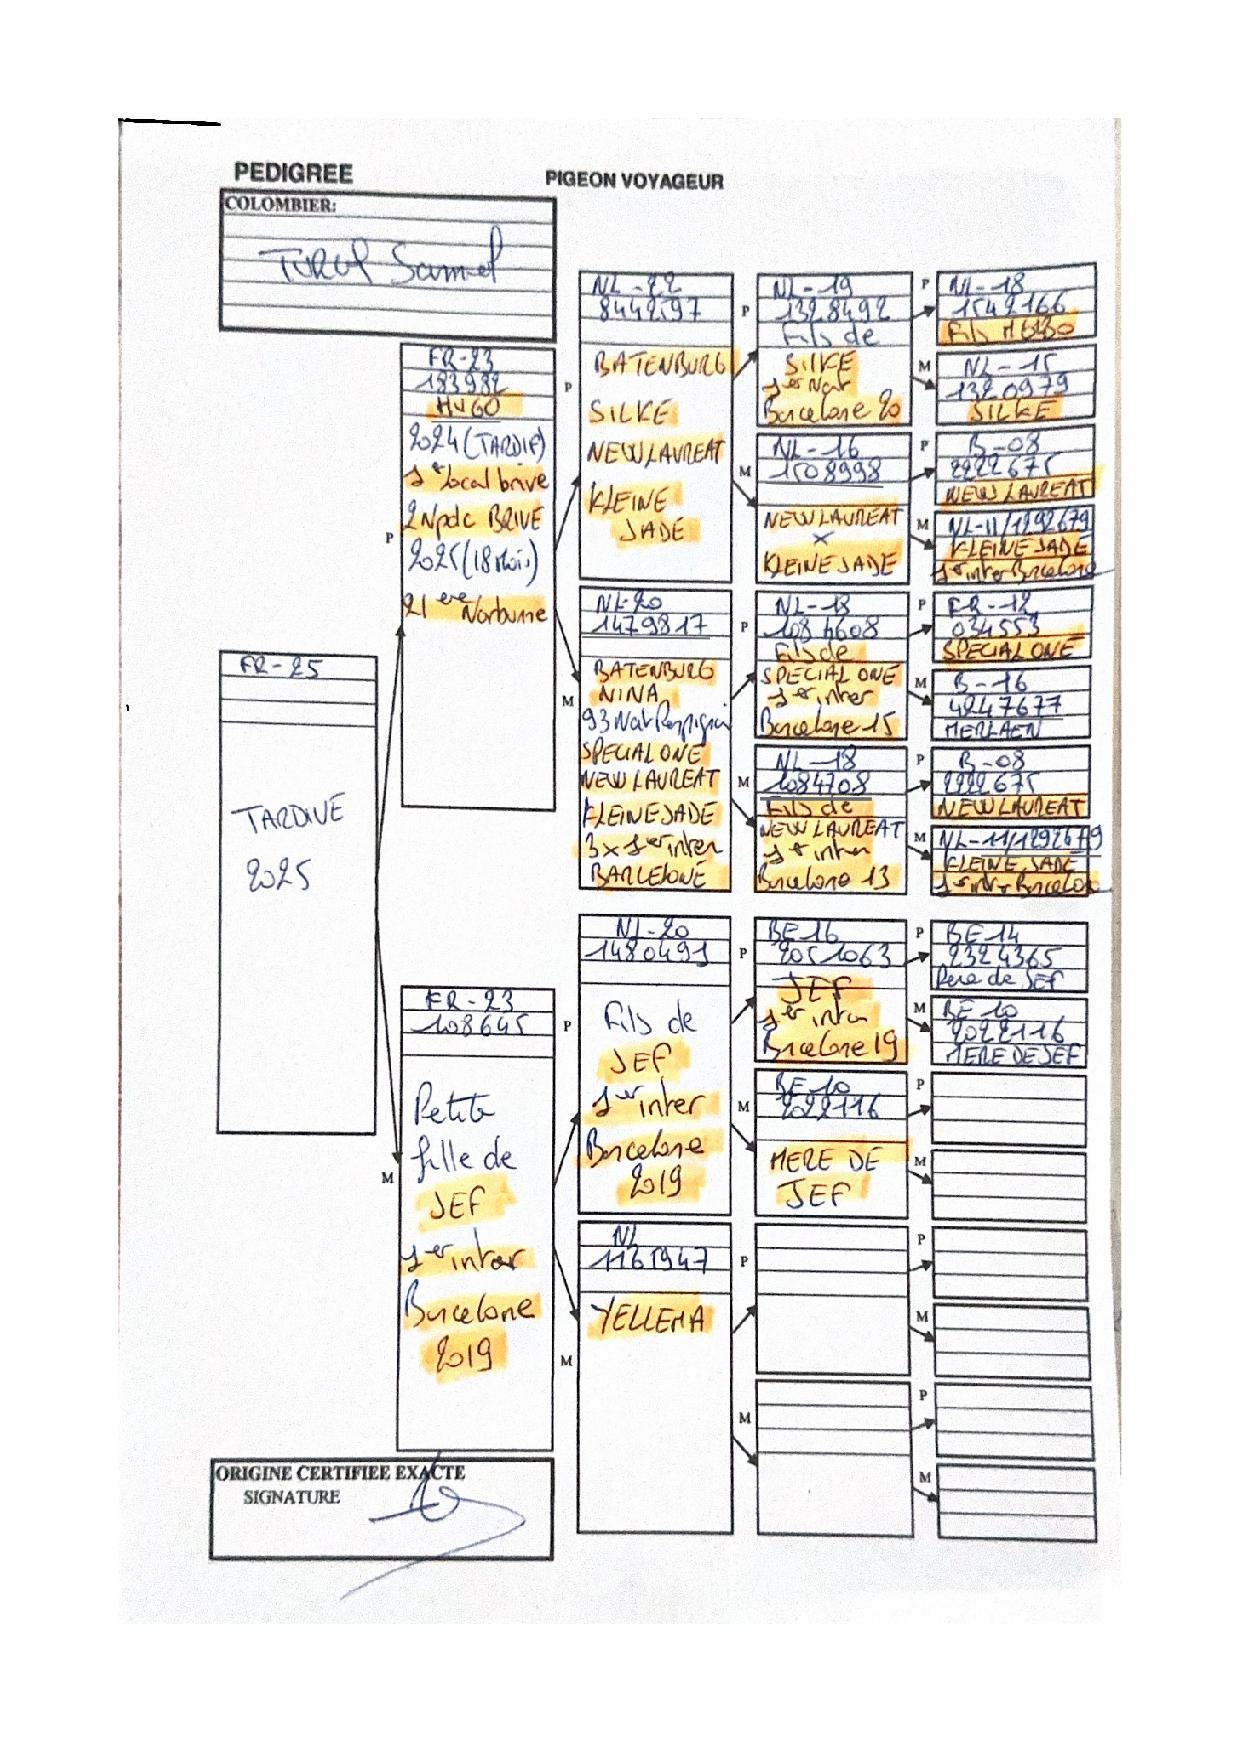 PEDIGREE
PIGEON VOYAGEUR
COLOMBIER:
FR-25
TARDIVE
2025
P
FR-23
183982
HUGO
2024 (TARDIF)
1er local brive
2Npdc BRIVE
2025 (18 Mois)
21ere Narbonne
M
FR-23
108645
Petite
fille de
JEF
1er inter
Barcelone
2019
P
NL-22
8442597
BATENBURG
SILKE
NEW LAUREAT
KLEINE
JADE
M
NL-20
1479817
BATENBURG
NINA
93 Nat Perpignan
SPECIAL ONE
NEW LAUREAT
KLEINE JADE
3x 1er inter
BARCELONE
P
NL-20
1480491
Fils de
JEF
1er inter
Barcelone
2019
M
NL
1161947
YELLEMA
P
NL-19
1328492
Fils de
SILKE
1er Nat
Barcelone 20
M
NL-16
1508998
NEW LAUREAT
x
KLEINE JADE
P
NL-18
1084608
Fils de
SPECIAL ONE
1er inter
Barcelone 15
M
NL-18
1084708
Fils de
NEW LAUREAT
1er inter
Barcelone 13
P
BE 16
2051063
JEF
1er inter
Barcelone 19
M
BE-10
2022116
MERE DE
JEF
P
M
P
NL-18
1542166
Fils
M
NL-15
1320979
SILKE
P
B-08
2222675
NEW LAUREAT
M
NL-11/1292679
KLEINE JADE
1er inter Barcelone
P
FR-12
034553
SPECIAL ONE
M
B-16
4247677
MERLAEN
P
B-08
2222675
NEW LAUREAT
M
NL-11/1292679
KLEINE JADE
1er inter Barcelone
P
BE 14
2324365
Pere de JEF
M
BE 10
2022116
MERE DE JEF
P
M
P
M
P
M
ORIGINE CERTIFIEE EXACTE
SIGNATURE